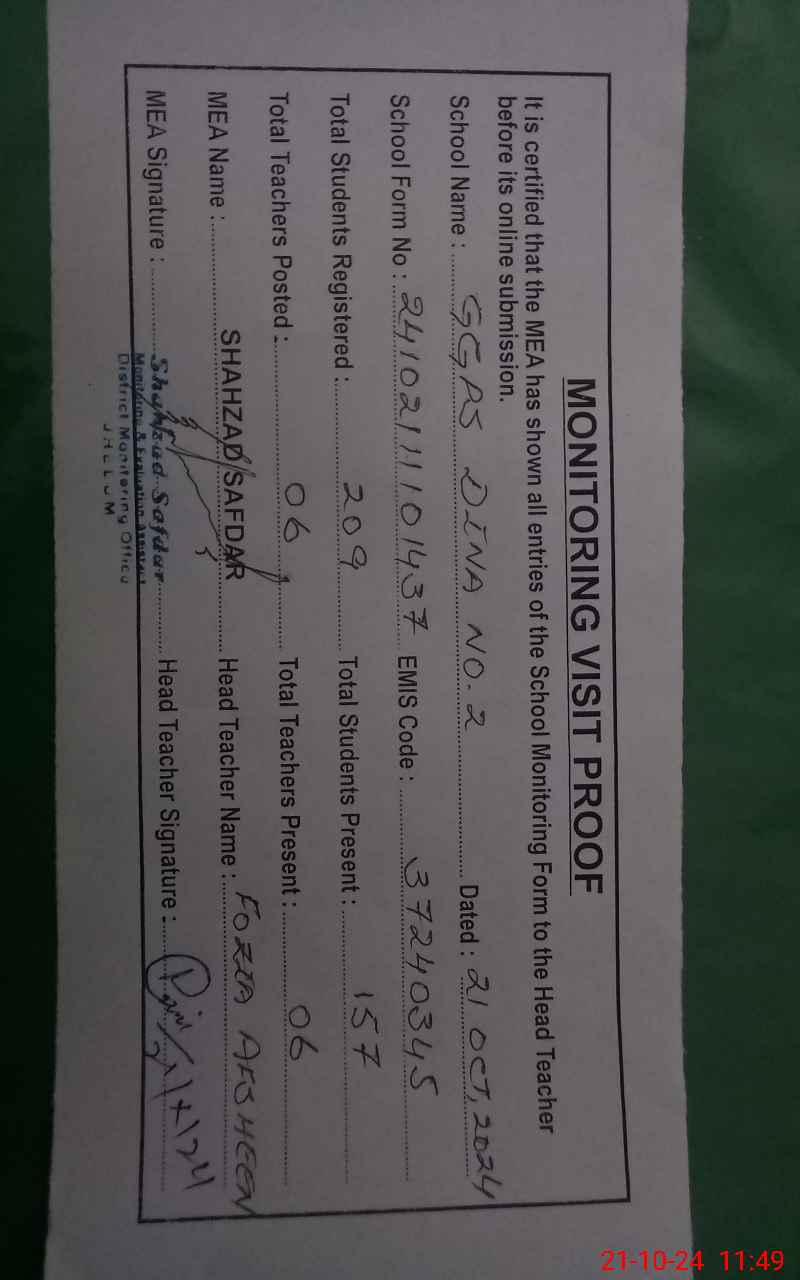 MONITORING VISIT PROOF
It is certified that the MEA has shown all entries of the School Monitoring Form to the Head Teacher
before its online submission.
School Name : GGPS DINA NO. 2 Dated : 21 OCT, 2024
School Form No : 24102111101437 EMIS Code : 37240345
Total Students Registered : 209 Total Students Present : 157
Total Teachers Posted : 06 Total Teachers Present : 06
MEA Name : SHAHZAD SAFDAR Head Teacher Name : FOZIA AFSHEEN
MEA Signature : Shahzad Safdar Head Teacher Signature :
Monitoring & Evaluation Assistant
District Monitoring Office
JHELUM
21-10-24 11:49